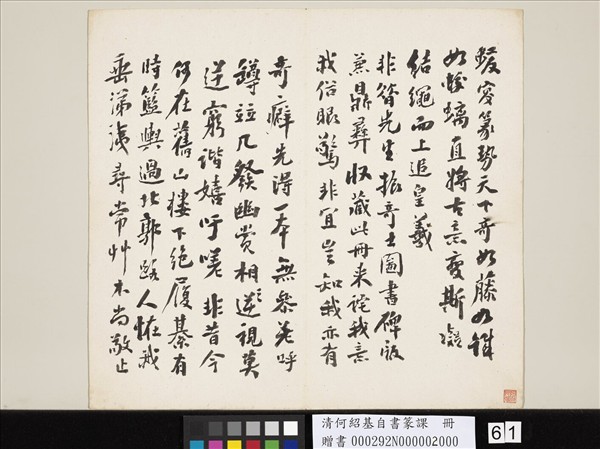 篆勢天下奇如藤如銕
如螭直將古意變斯
結繩而上追皇羲
先生振奇士圖書碑版
兼鼎彝收藏此冊来詫我意
我俗眼驚非宜豈知我亦有
奇癖先得一本無參差呼
竝几發幽賞相逆視莫
逆窮諧嬉吁嗟非昔今
何在舊山樓下絕履綦有
時籃輿過北郭路人怪我
垂涕洟尋常艸木尚敬止
清何紹基自書篆課 冊
贈書 000292N000002000
61